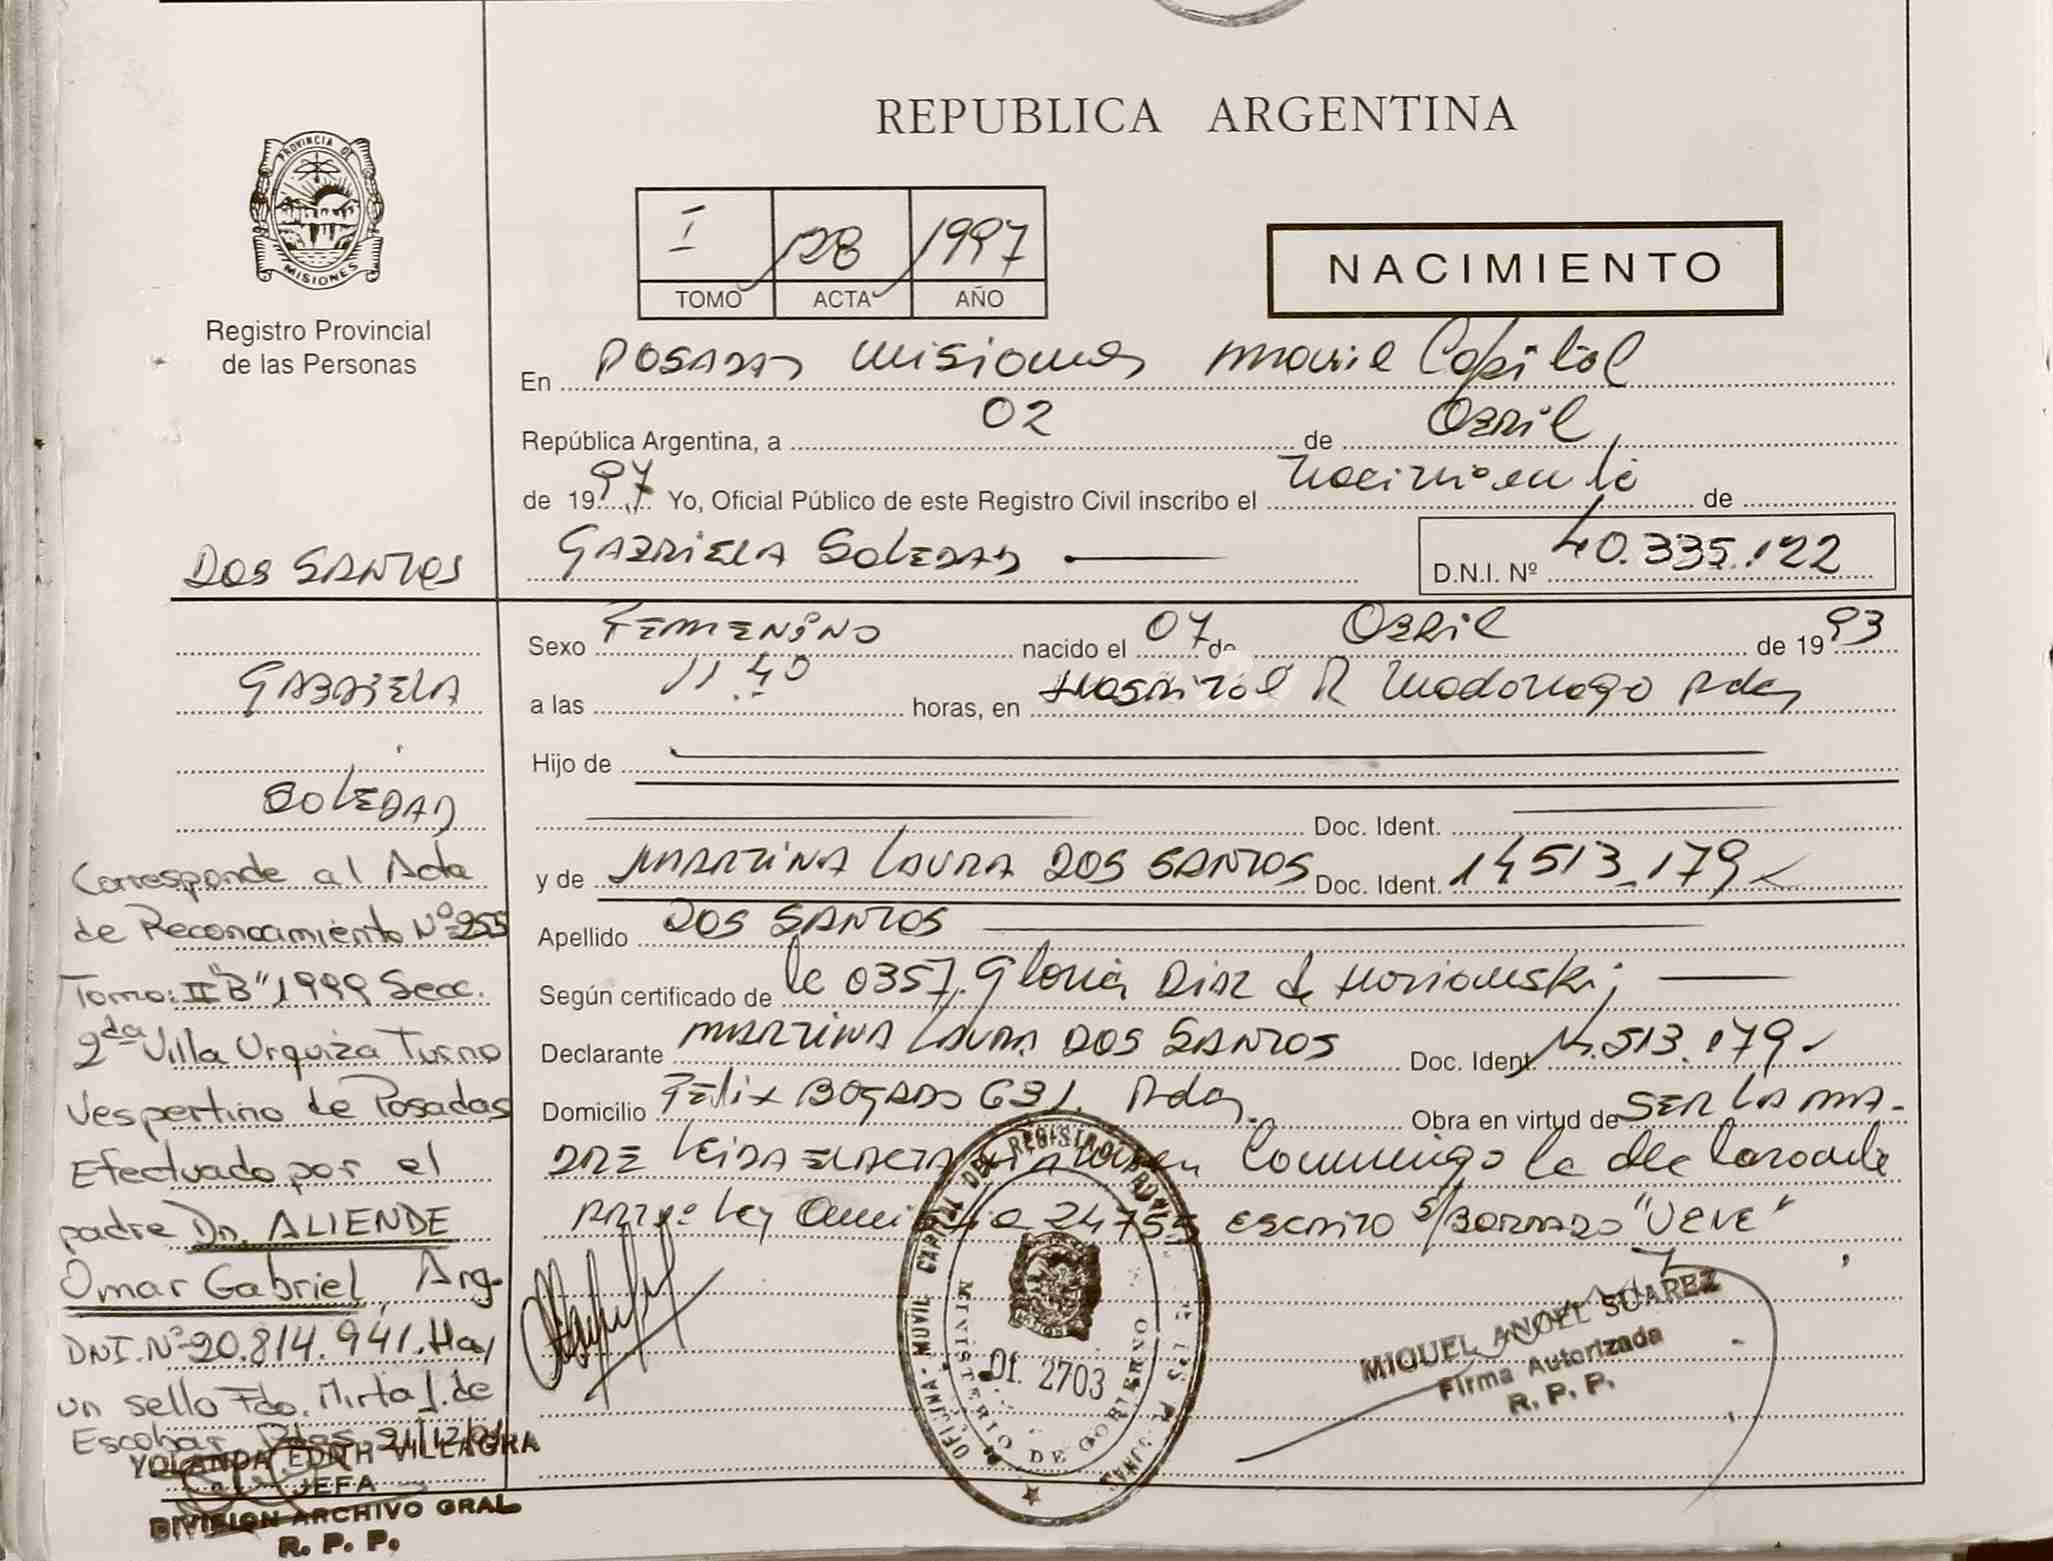 REPUBLICA ARGENTINA
PROVINCIA DE
MISIONES
Registro Provincial
de las Personas
I 128 1997
TOMO ACTA AÑO
NACIMIENTO
En Posadas Misiones Movil Capital
República Argentina, a 02 de Abril
de 1997 Yo, Oficial Público de este Registro Civil inscribo el Nacimiento de
GABRIELA SOLEDAD D.N.I. Nº 40.335.122
Sexo FEMENINO nacido el 07 de Abril de 1993
a las 11.40 horas, en Hospital R Madariaga Pdas
Hijo de
Doc. Ident.
y de MARTINA LAURA DOS SANTOS Doc. Ident. 14513.179
Apellido DOS SANTOS
Según certificado de le 0357. Gloria Diaz de
Declarante MARTINA LAURA DOS SANTOS Doc. Ident. 14.513.179
Domicilio Felix BOGADO 631. Pdas. Obra en virtud de SER LA MA-
DRE Leida el acta firman Conmigo la declarante
Ley 24755 escrito s/Borrado "Jeve"
DOS SANTOS
GABRIELA
SOLEDAD
Corresponde al Acta
de Reconocimiento Nº 255
Tomo: II "B" 1999 Secc.
2da Villa Urquiza Turno
Vespertino de Posadas
Efectuado por el
padre Dn. ALIENDE
Omar Gabriel, Arg.
DNI. Nº 20.814.941. Hay
un sello Fdo. Mirta J. de
Escobar Pdas
YOLANDA EDITH VILLAGRA
JEFA
DIVISION ARCHIVO GRAL
R. P. P.
OFICINA MOVIL CAPITAL DEL REGISTRO PROV
MINISTERIO DE GOBIERNO
Of. 2703
MIGUEL ANGEL SUAREZ
Firma Autorizada
R. P. P.